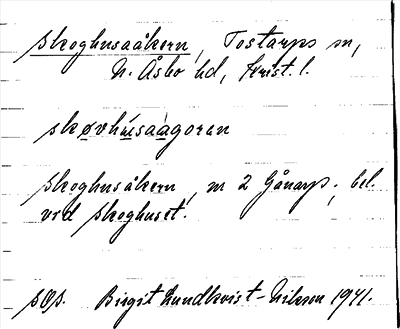 Skoghusaåkern, Tostarps sn,
N. Åsbo hd, Krist. l.
skøvhúsaagoran
Skoghusåkern, nr 2 Gånarp, bel.
vid Skoghuset.
Birgit Lundkvist-Nilsson 1941.